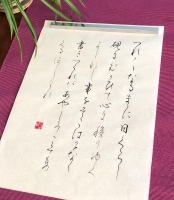 つれ〱なるまゝに日くらし
硯にむかひて心に移りゆく
よしなし事をそこはかとなく
書きつくれはあやしうこそもの
くるほしけれ